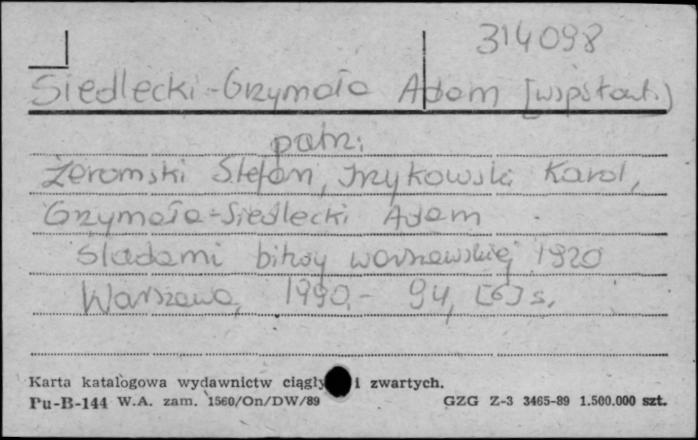 314098
Siedlecki-Grzymała Adam [współaut.)
patrz:
Żeromski Stefan, Irzykowski Karol,
Grzymała-Siedlecki Adam
Śladami bitwy warszawskiej 1920
Warszawa, 1990.- 94, [6] s.
Karta katalogowa wydawnictw ciągły i zwartych.
Pu-B-144 W.A. zam. 1560/On/DW/89 GZG Z-3 3465-89 1.500.000 szt.